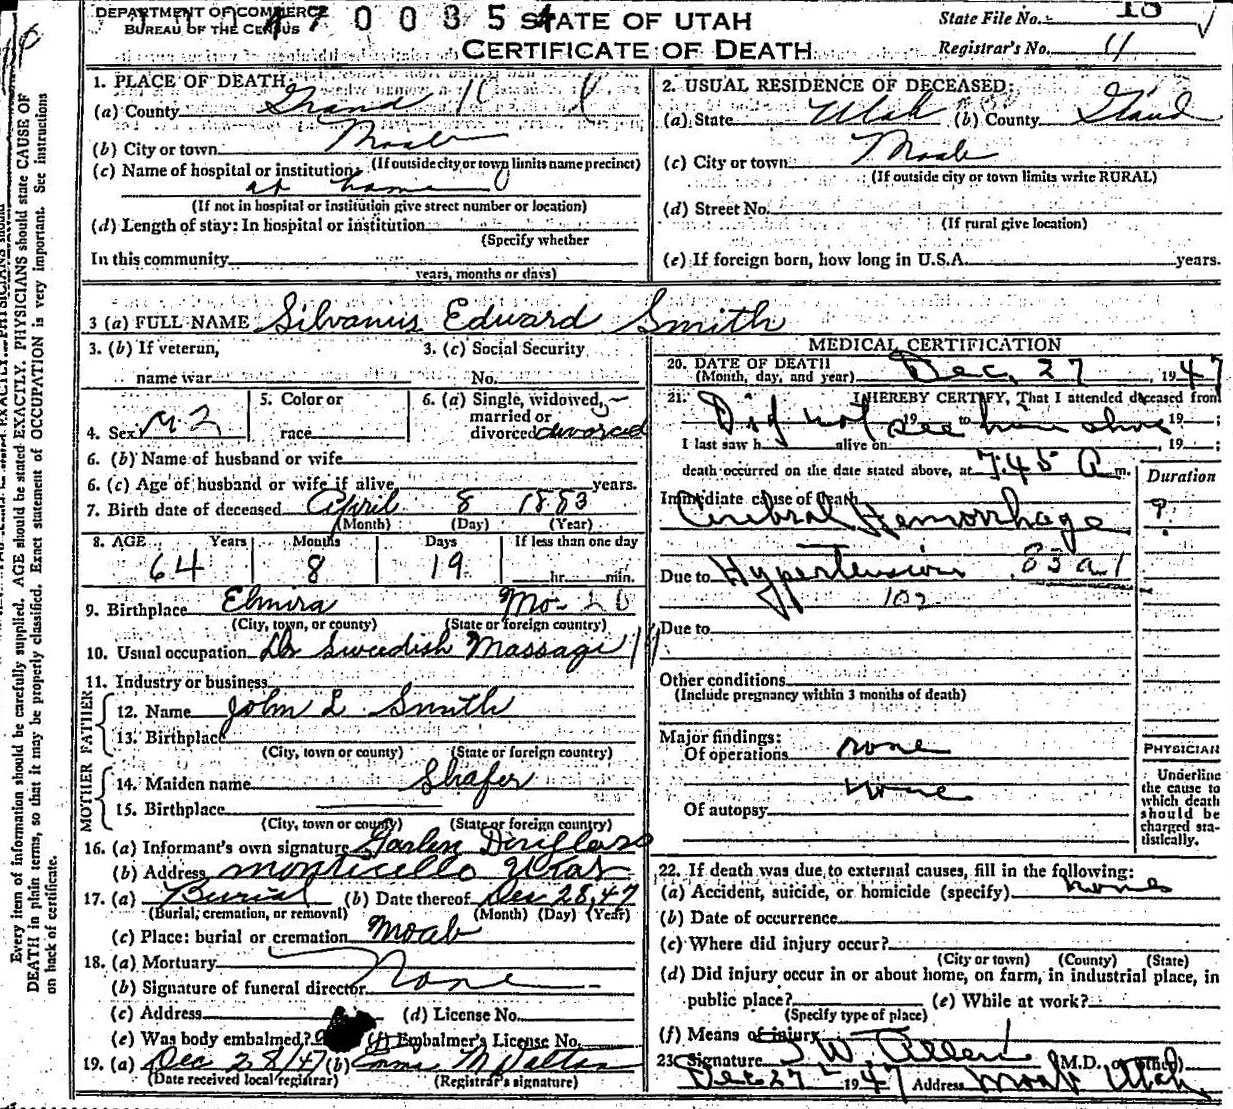 DEPARTMENT OF COMMERCE
BUREAU OF THE CENSUS
47 0 0 8 5 4
STATE OF UTAH
CERTIFICATE OF DEATH
State File No. 18
Registrar's No. 4
1. PLACE OF DEATH:
(a) County Grand
(b) City or town Moab
(If outside city or town limits name precinct)
(c) Name of hospital or institution:
at home
(If not in hospital or institution give street number or location)
(d) Length of stay: In hospital or institution
(Specify whether
In this community
years, months or days)
2. USUAL RESIDENCE OF DECEASED:
(a) State Utah (b) County Grand
(c) City or town Moab
(If outside city or town limits write RURAL)
(d) Street No.
(If rural give location)
(e) If foreign born, how long in U.S.A. years.
3 (a) FULL NAME Silvanus Edward Smith
3. (b) If veteran,
name war
3. (c) Social Security
No.
4. Sex M 2
5. Color or
race
6. (a) Single, widowed,
married or
divorced divorced
6. (b) Name of husband or wife
6. (c) Age of husband or wife if alive years.
7. Birth date of deceased April 8 1883
(Month) (Day) (Year)
8. AGE Years Months Days If less than one day
64 8 19 hr. min.
9. Birthplace Elmira Mo-
(City, town, or county) (State or foreign country)
10. Usual occupation Dr Swedish Massage
11. Industry or business
FATHER
12. Name John L Smith
13. Birthplace
(City, town or county) (State or foreign country)
MOTHER
14. Maiden name Shafer
15. Birthplace
(City, town or county) (State or foreign country)
16. (a) Informant's own signature Garlen Douglass
(b) Address Monticello Utah
17. (a) Burial (b) Date thereof Dec 28, 47
(Burial, cremation, or removal) (Month) (Day) (Year)
(c) Place: burial or cremation Moab
18. (a) Mortuary
(b) Signature of funeral director None
(c) Address (d) License No.
(e) Was body embalmed? (f) Embalmer's License No.
19. (a) Dec 28/47 (b) Emma M Walton
(Date received local registrar) (Registrar's signature)
MEDICAL CERTIFICATION
20. DATE OF DEATH
(Month, day, and year) Dec. 27, 1947
21. I HEREBY CERTIFY, That I attended deceased from
Did not see him alive
19 to 19 ;
I last saw h alive on , 19 ;
death occurred on the date stated above, at 7:45 A m.
Duration
Immediate cause of death
Cerebral Hemorrhage ?
Due to Hypertension 83 a-1
102
Due to
Other conditions
(Include pregnancy within 3 months of death)
Major findings:
Of operations none
Of autopsy none
PHYSICIAN
Underline
the cause to
which death
should be
charged sta-
tistically.
22. If death was due to external causes, fill in the following:
(a) Accident, suicide, or homicide (specify) none
(b) Date of occurrence
(c) Where did injury occur?
(City or town) (County) (State)
(d) Did injury occur in or about home, on farm, in industrial place, in
public place? (e) While at work?
(Specify type of place)
(f) Means of injury
23. Signature I. W. Allen (M.D. or other)
Dec 27 1947 Address Moab Utah
Every item of information should be carefully supplied. AGE should be stated EXACTLY. PHYSICIANS should state CAUSE OF
DEATH in plain terms, so that it may be properly classified. Exact statement of OCCUPATION is very important. See instructions
on back of certificate.